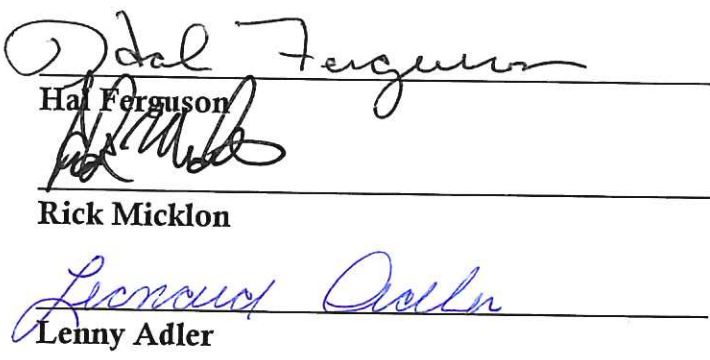 Hal Ferguson
Hal Ferguson
Rick Micklon
Leonard Adler
Lenny Adler